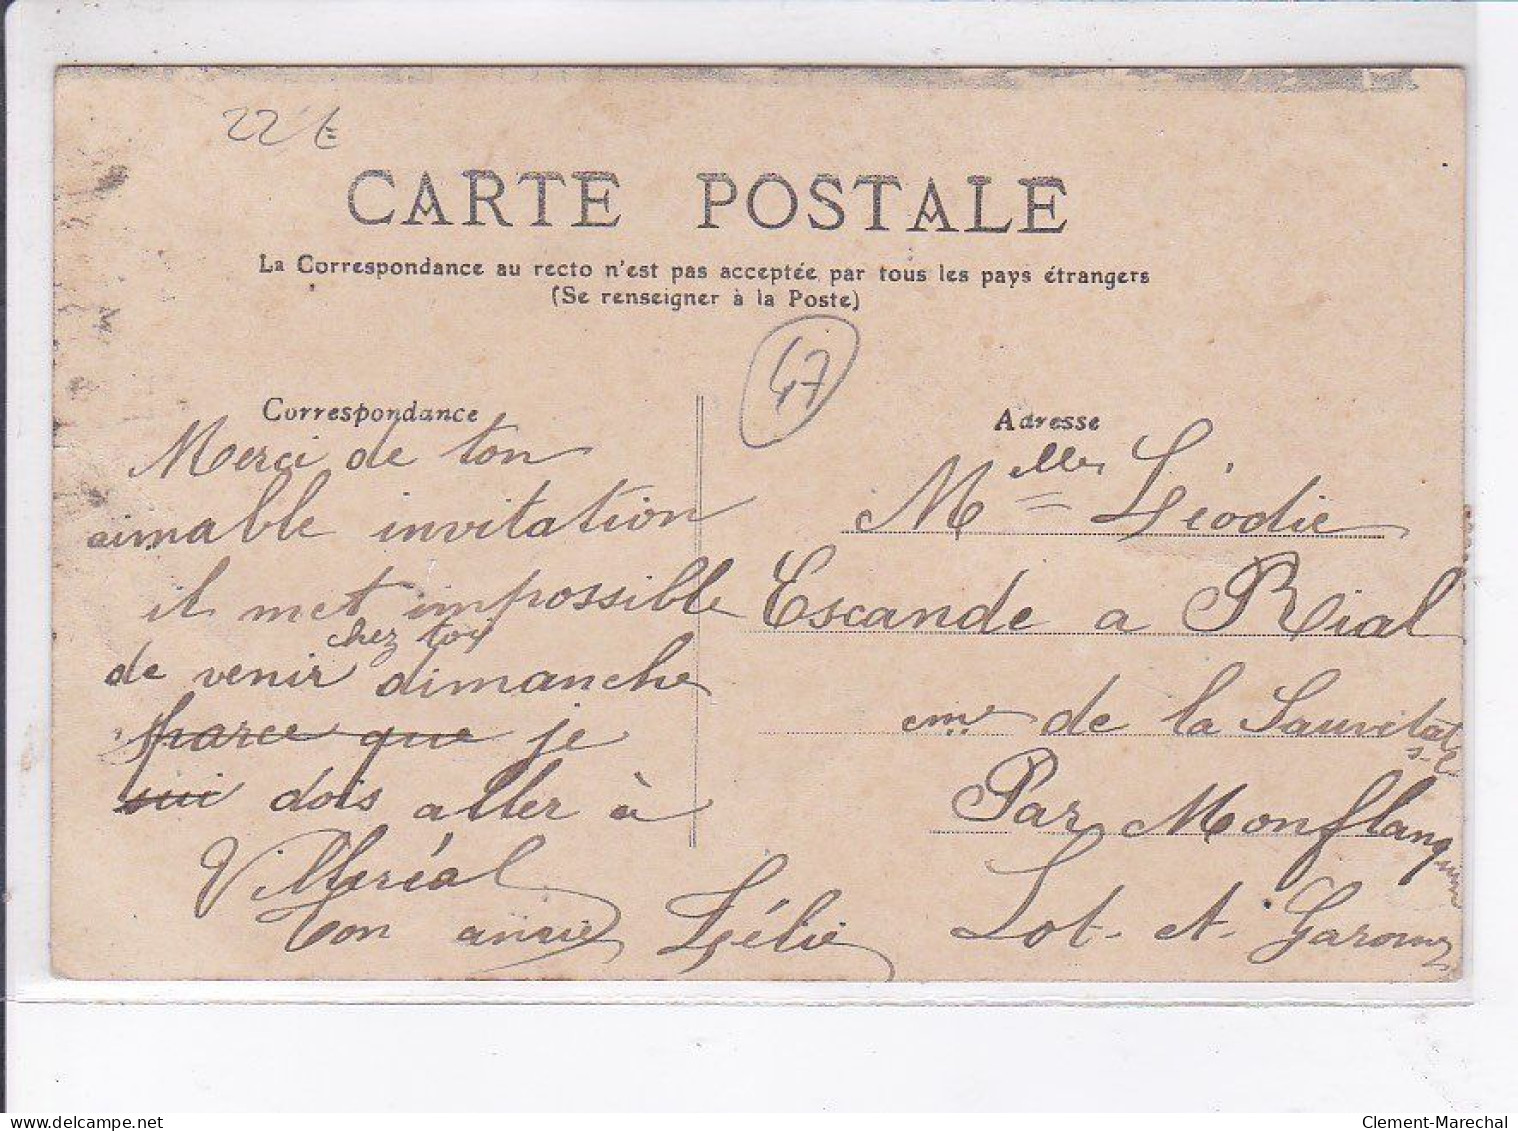 22 €
CARTE POSTALE
La Correspondance au recto n'est pas acceptée par tous les pays étrangers
(Se renseigner à la Poste)
47
Correspondance
Merci de ton
aimable invitation
il met impossible
chez toi
de venir dimanche
parce que je
sui dois aller à
Villeréal
Ton amie Lélie
Adresse
Melle Léodie
Escande a Rial
cme de la Sauvetat
s-l
Par Monflanquin
Lot-et-Garonne
www.delcampe.net
Clement-Marechal